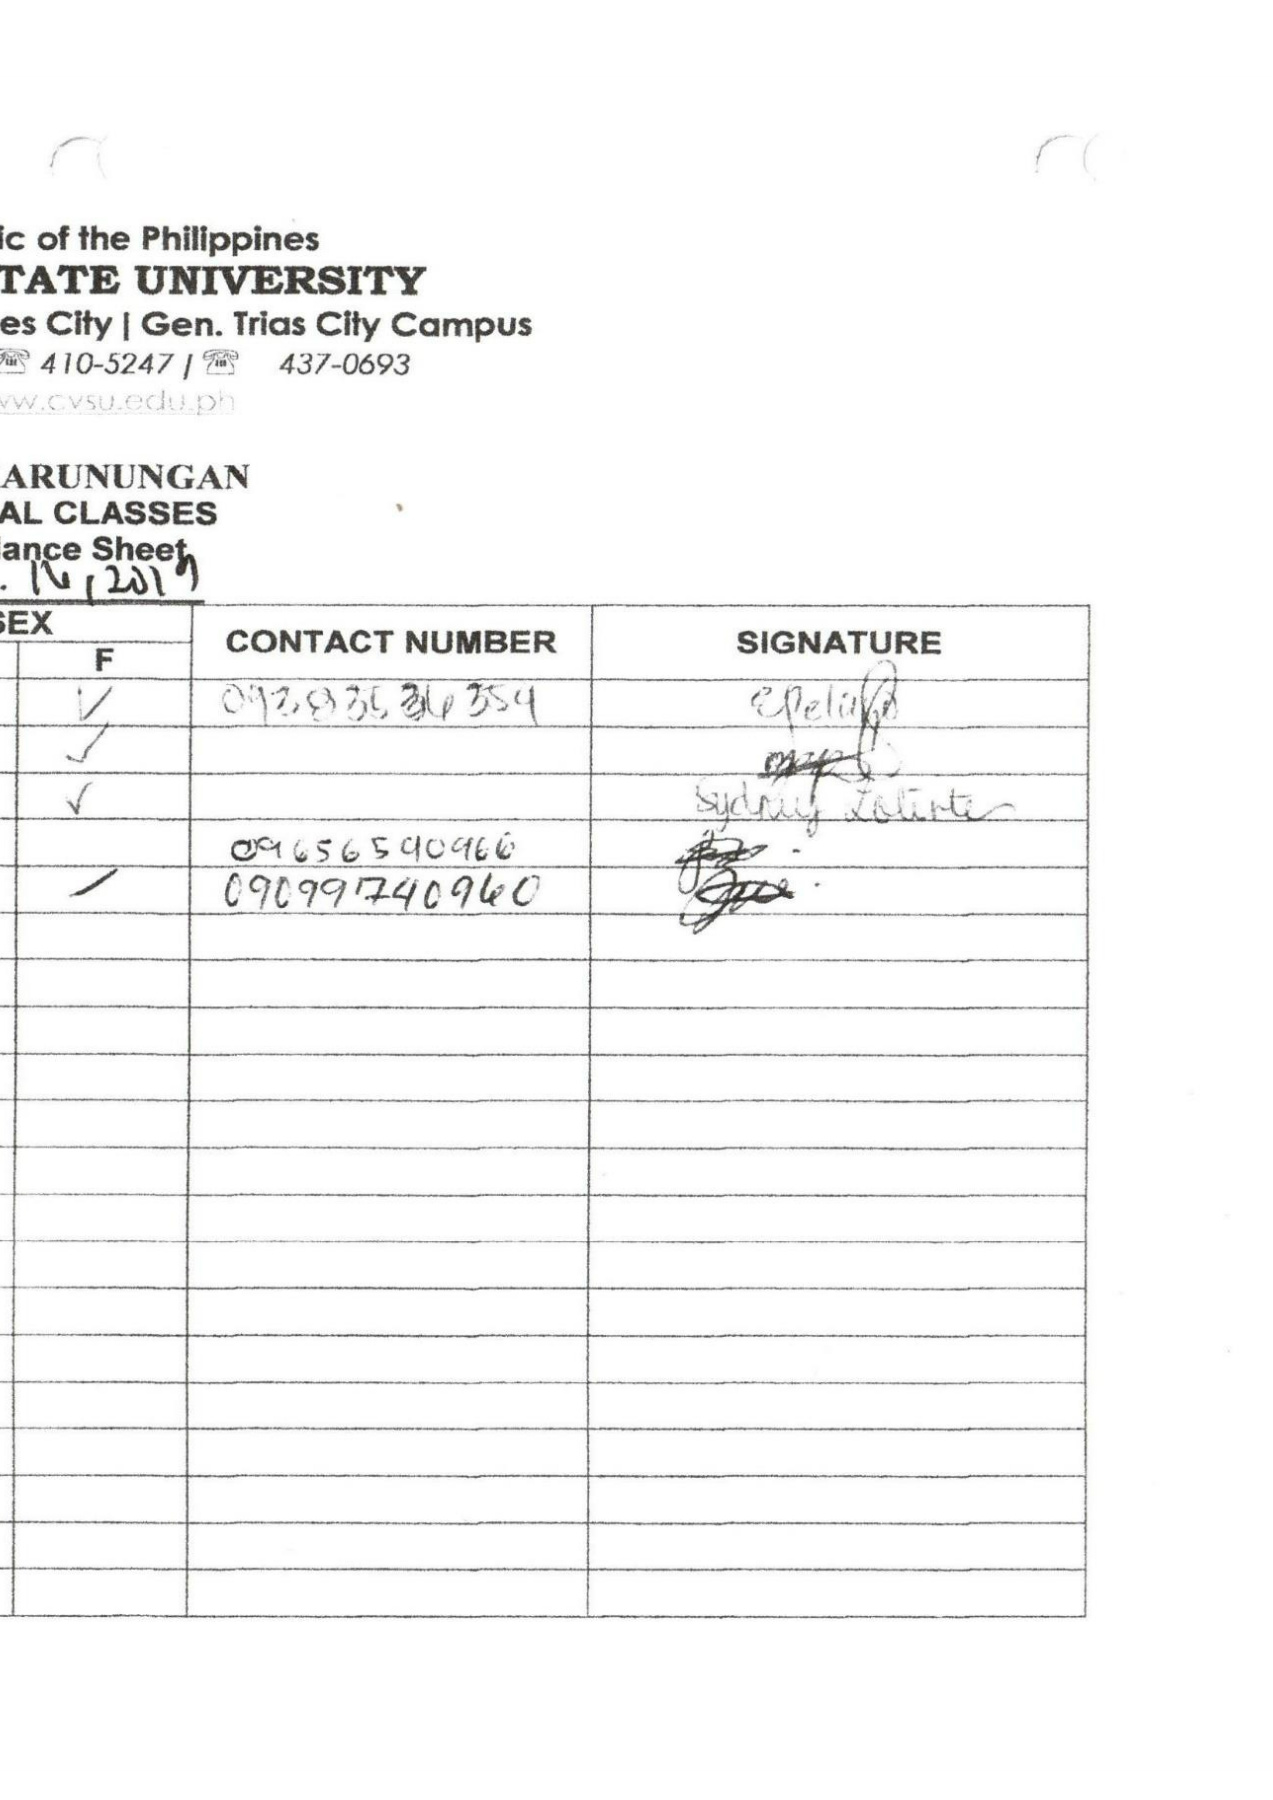 ic of the Philippines
TATE UNIVERSITY
es City | Gen. Trias City Campus
☏ 410-5247 / ☏ 437-0693
ww.cvsu.edu.ph
ARUNUNGAN
AL CLASSES
dance Sheet
. 16, 2019
SEX CONTACT NUMBER SIGNATURE
F
✓
✓
✓ Sydney
09656590966
09099740960